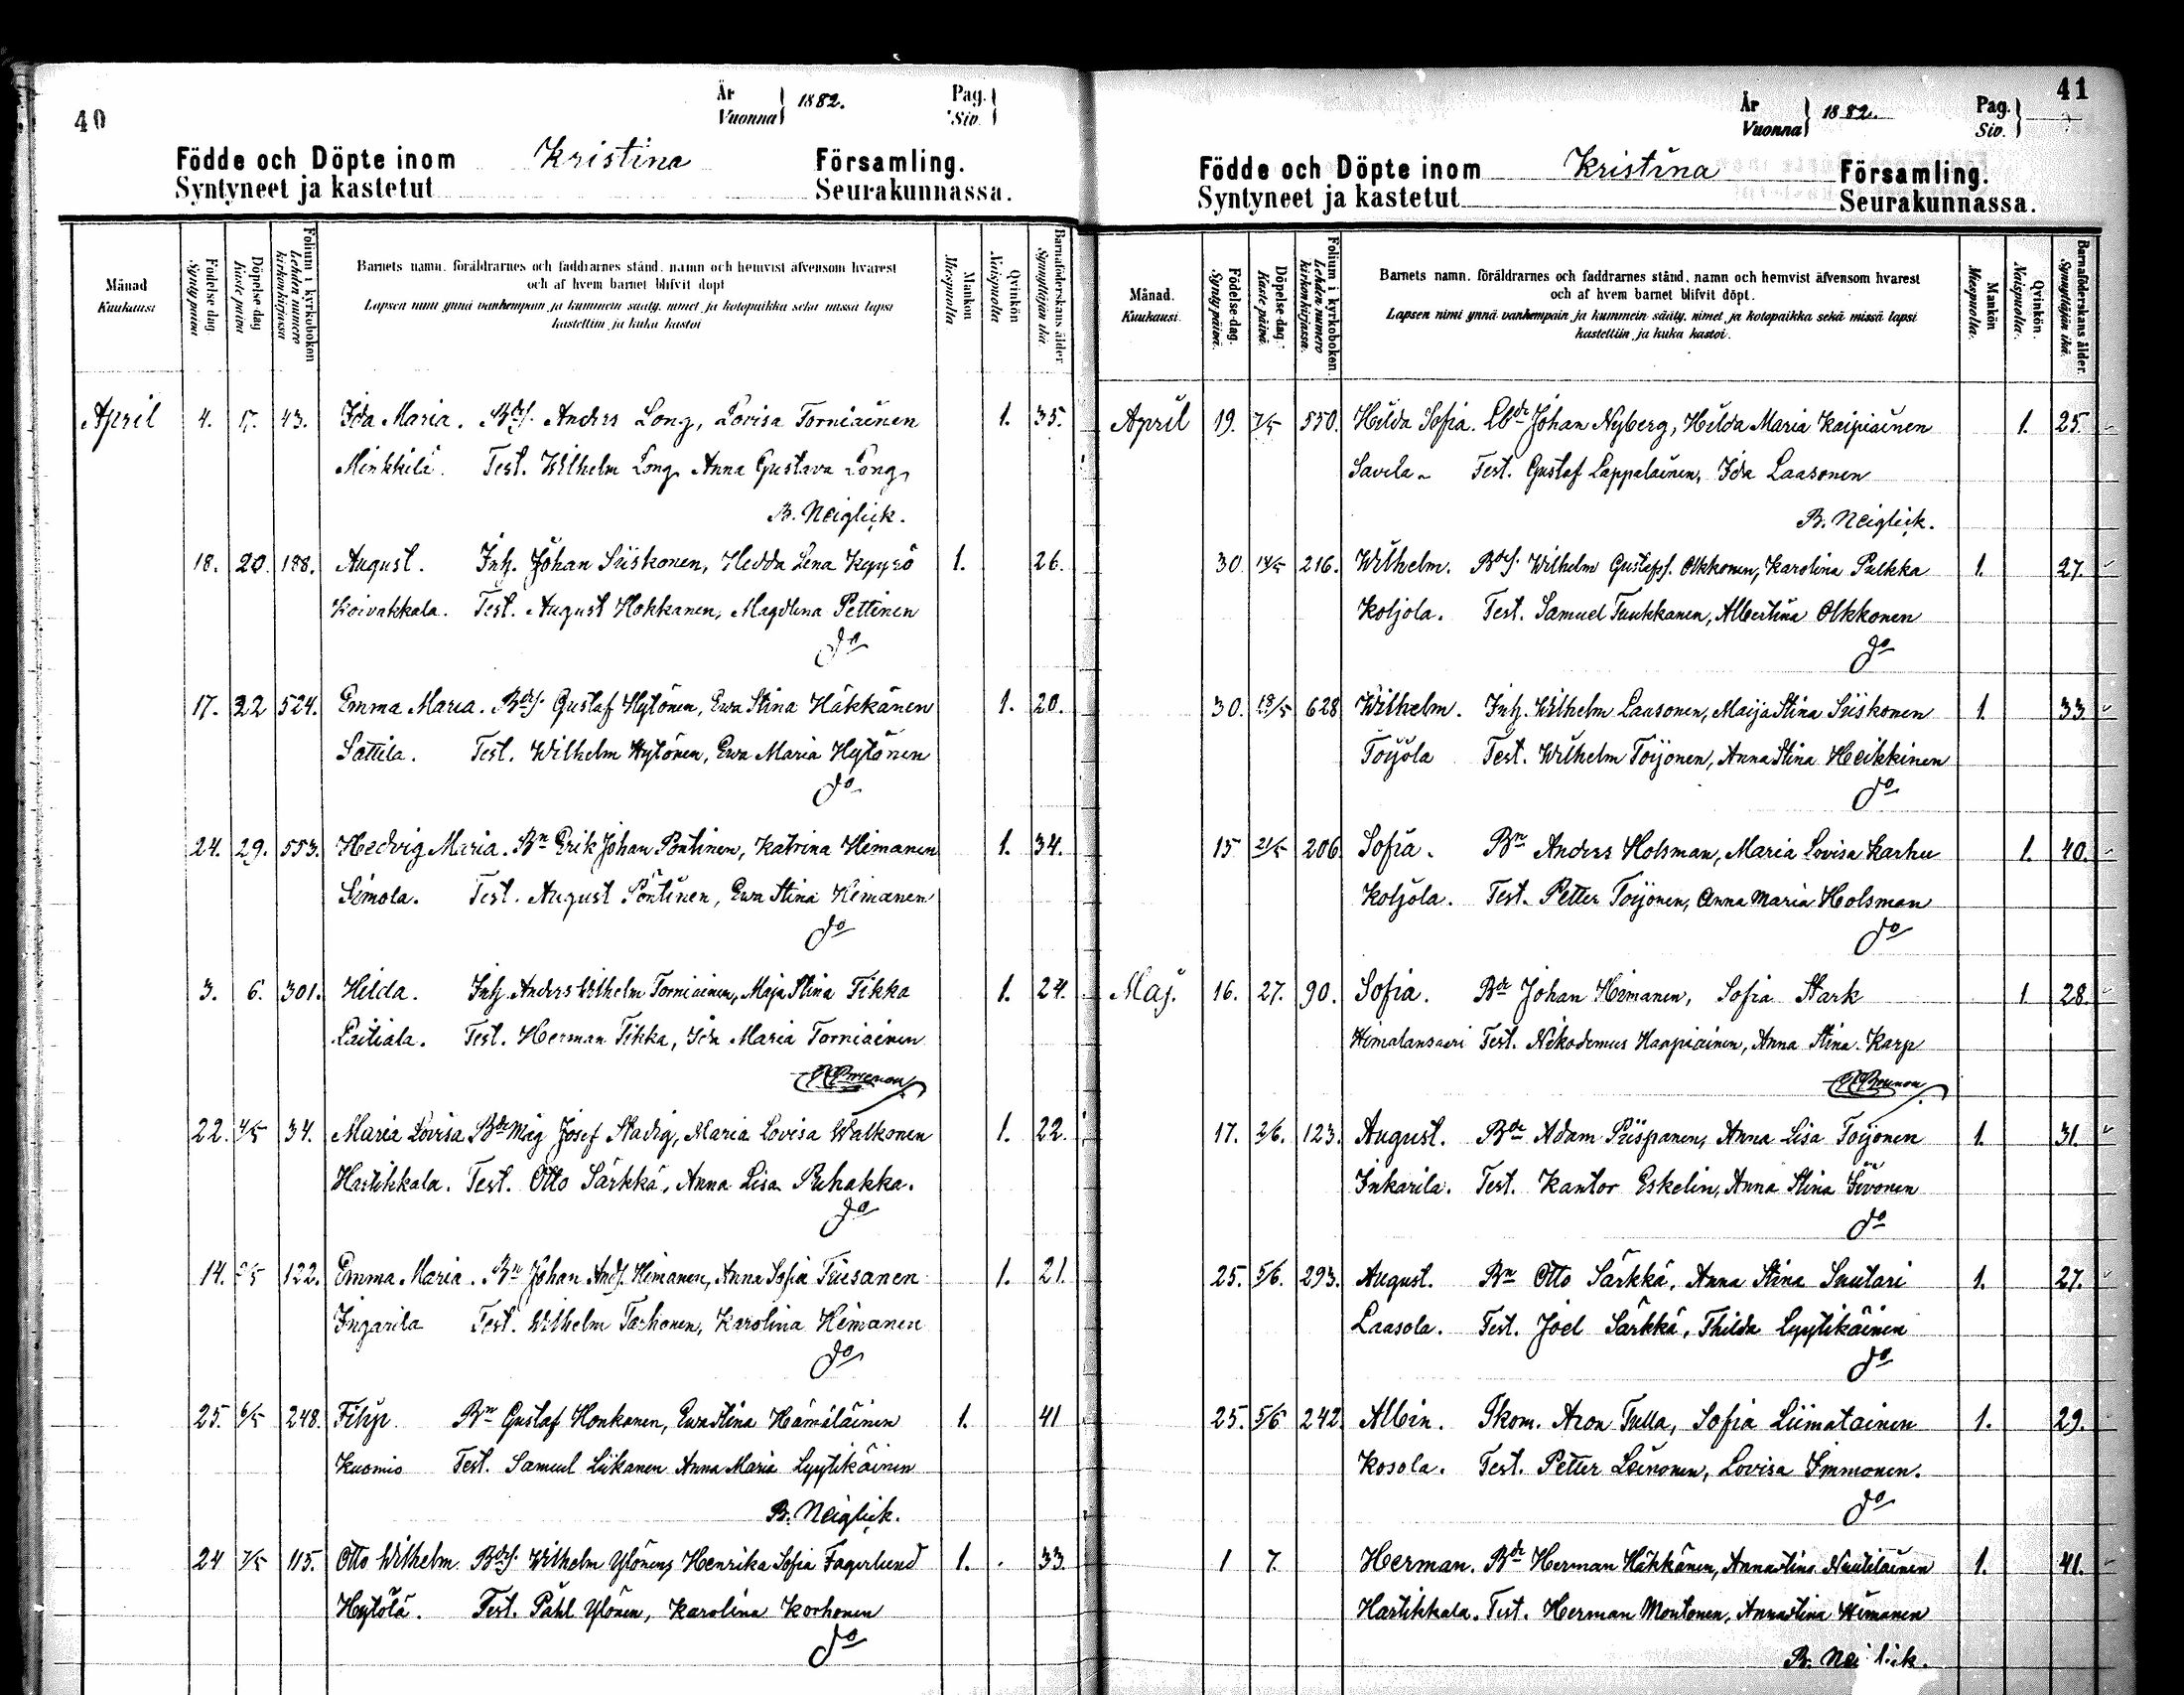 40
År 1882. Pag.
Vuonna Siv.
Födde och Döpte inom Kristina Församling.
Syntyneet ja kastetut Seurakunnassa.
Månad
Kuukausi
Födelse dag
Synty päivä
Döpelse dag
Kaste päivä
Folium i kyrkoboken
Lehden numero kirkonkirjassa
Barnets namn, föräldrarnes och faddrarnes stånd, namn och hemvist äfvensom hvarest
och af hvem barnet blifvit döpt
Lapsen nimi ynnä vanhempain ja kummein sääty, nimet ja kotopaikka sekä missä lapsi
kastettiin ja kuka kastoi
Mankön
Miespuolta
Qvinkön
Naispuolta
Barnaföderskans ålder
Synnyttäjän ikä
April 4. 17. 43. Ida Maria. Bds. Anders Long, Lovisa Torniainen 1. 35.
Minkkilä. Test. Wilhelm Long, Anna Gustava Long,
B. Neiglick.
18. 20. 188. August. Inh. Johan Siiskonen, Hedda Lena Kyyrö 1. 26.
Koivakkala. Test. August Hokkanen, Magdlena Pettinen
do
17. 22 524. Emma Maria. Bds. Gustaf Hytönen, Ewa Stina Häkkänen 1. 20.
Sattila. Test. Wilhelm Hytönen, Ewa Maria Hytönen
do
24. 29. 553. Hedvig Maria. Bn Erik Johan Pöntinen, Katrina Himanen 1. 34.
Simola. Test. August Pöntinen, Ewa Stina Himanen
do
3. 6. 301. Hilda. Inh. Anders Wilhelm Torniainen, Maja Stina Tikka 1. 24.
Paitiala. Test. Herman Tikka, Ida Maria Torniainen
22. 4/5 34. Maria Lovisa Bde Måg Josef Stadig, Maria Lovisa Walkonen 1. 22.
Hartikkala. Test. Otto Särkkä, Anna Lisa Puhakka.
do
14. 122. Emma Maria. Bn Johan Ands. Himanen, Anna Sofia Tiusanen 1. 21.
Ingarila Test. Wilhelm Tarhonen, Karolina Himanen
do
25. 6/5 248. Filip. Bn Gustaf Honkanen, Ewa Stina Hämäläinen 1. 41
Kuomio Test. Samuel Liikanen Anna Maria Lyytikäinen
B. Neiglick.
24 7/5 115. Otto Wilhelm. Bds. Wilhelm Ylönen, Henrika Sofia Fagerlund 1. 33.
Hytölä. Test. Påhl Ylönen, Karolina Korhonen
do
41
År 1882. Pag.
Vuonna Siv.
Födde och Döpte inom Kristina Församling.
Syntyneet ja kastetut Seurakunnassa.
Månad.
Kuukausi.
Födelse-dag.
Synty päivä.
Döpelse-dag.
Kaste päivä.
Folium i kyrkoboken.
Lehden numero kirkonkirjassa.
Barnets namn, föräldrarnes och faddrarnes stånd, namn och hemvist äfvensom hvarest
och af hvem barnet blifvit döpt.
Lapsen nimi ynnä vanhempain ja kummein sääty, nimet ja kotopaikka sekä missä lapsi
kastettiin ja kuka kastoi.
Mankön
Miespuolta.
Qvinkön.
Naispuolta.
Barnaföderskans ålder.
Synnyttäjän ikä.
April 19. 7/5 550. Hilda Sofia. Lbde Johan Nyberg, Hilda Maria Kaipiainen 1. 25.
Savila. Test. Gustaf Lappalainen, Ida Laasonen
B. Neiglick.
30 14/5 216. Wilhelm. Bds. Wilhelm Gustafs. Olkkonen, Karolina Pulkka 1. 27.
Koljola. Test. Samuel Tuukkanen, Albertina Olkkonen
do
30. 18/5 628 Wilhelm. Inh. Wilhelm Laasonen, Maija Stina Siiskonen 1. 33
Toijola Test. Wilhelm Toijonen, Anna Stina Heikkinen
do
15 21/5 206 Sofia. Bn Anders Holsman, Maria Lovisa Karhu 1. 40.
Koljola. Test. Petter Toijonen, Anna Maria Holsman
do
Maj. 16. 27. 90. Sofia. Bde Johan Himanen, Sofia Stark 1 28.
Himalansaari Test. Nikodemus Haapiainen, Anna Stina Karp
17. 2/6. 123. August. Bde Adam Piispanen, Anna Lisa Toijonen 1. 31.
Inkarila. Test. Kantor Eskelin, Anna Stina Iivonen
do
25. 5/6. 293. August. Bn Otto Särkkä, Anna Stina Suutari 1. 27.
Laasola. Test. Joel Särkkä, Thilda Lyytikäinen
do
25. 5/6 242 Albin. Skom. Aron Tulla, Sofia Liimatainen 1. 29.
Kosola. Test. Petter Leinonen, Lovisa Immonen.
do
1 7. Herman. Bde Herman Häkkänen, Anna Stina Nuutilainen 1. 41.
Hartikkala. Test. Herman Montonen, Anna Stina Himanen